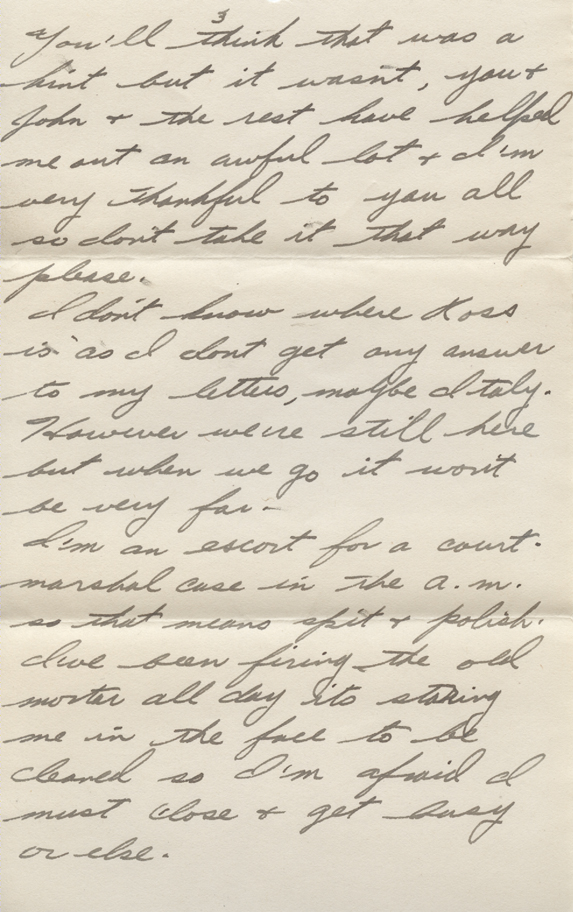 3
You'll think that was a
hint but it wasn't, you +
John + the rest have helped
me out an awful lot + I'm
very thankful to you all
so don't take it that way
please.
I don't know where Koss
is as I dont get any answer
to my letters, maybe Italy.
However we're still here
but when we go it won't
be very far-
I'm an escort for a court-
marshal case in the a.m.
so that means spit + polish.
I've been firing the old
mortar all day its staring
me in the face to be
cleaned so I'm afraid I
must close + get busy
or else.